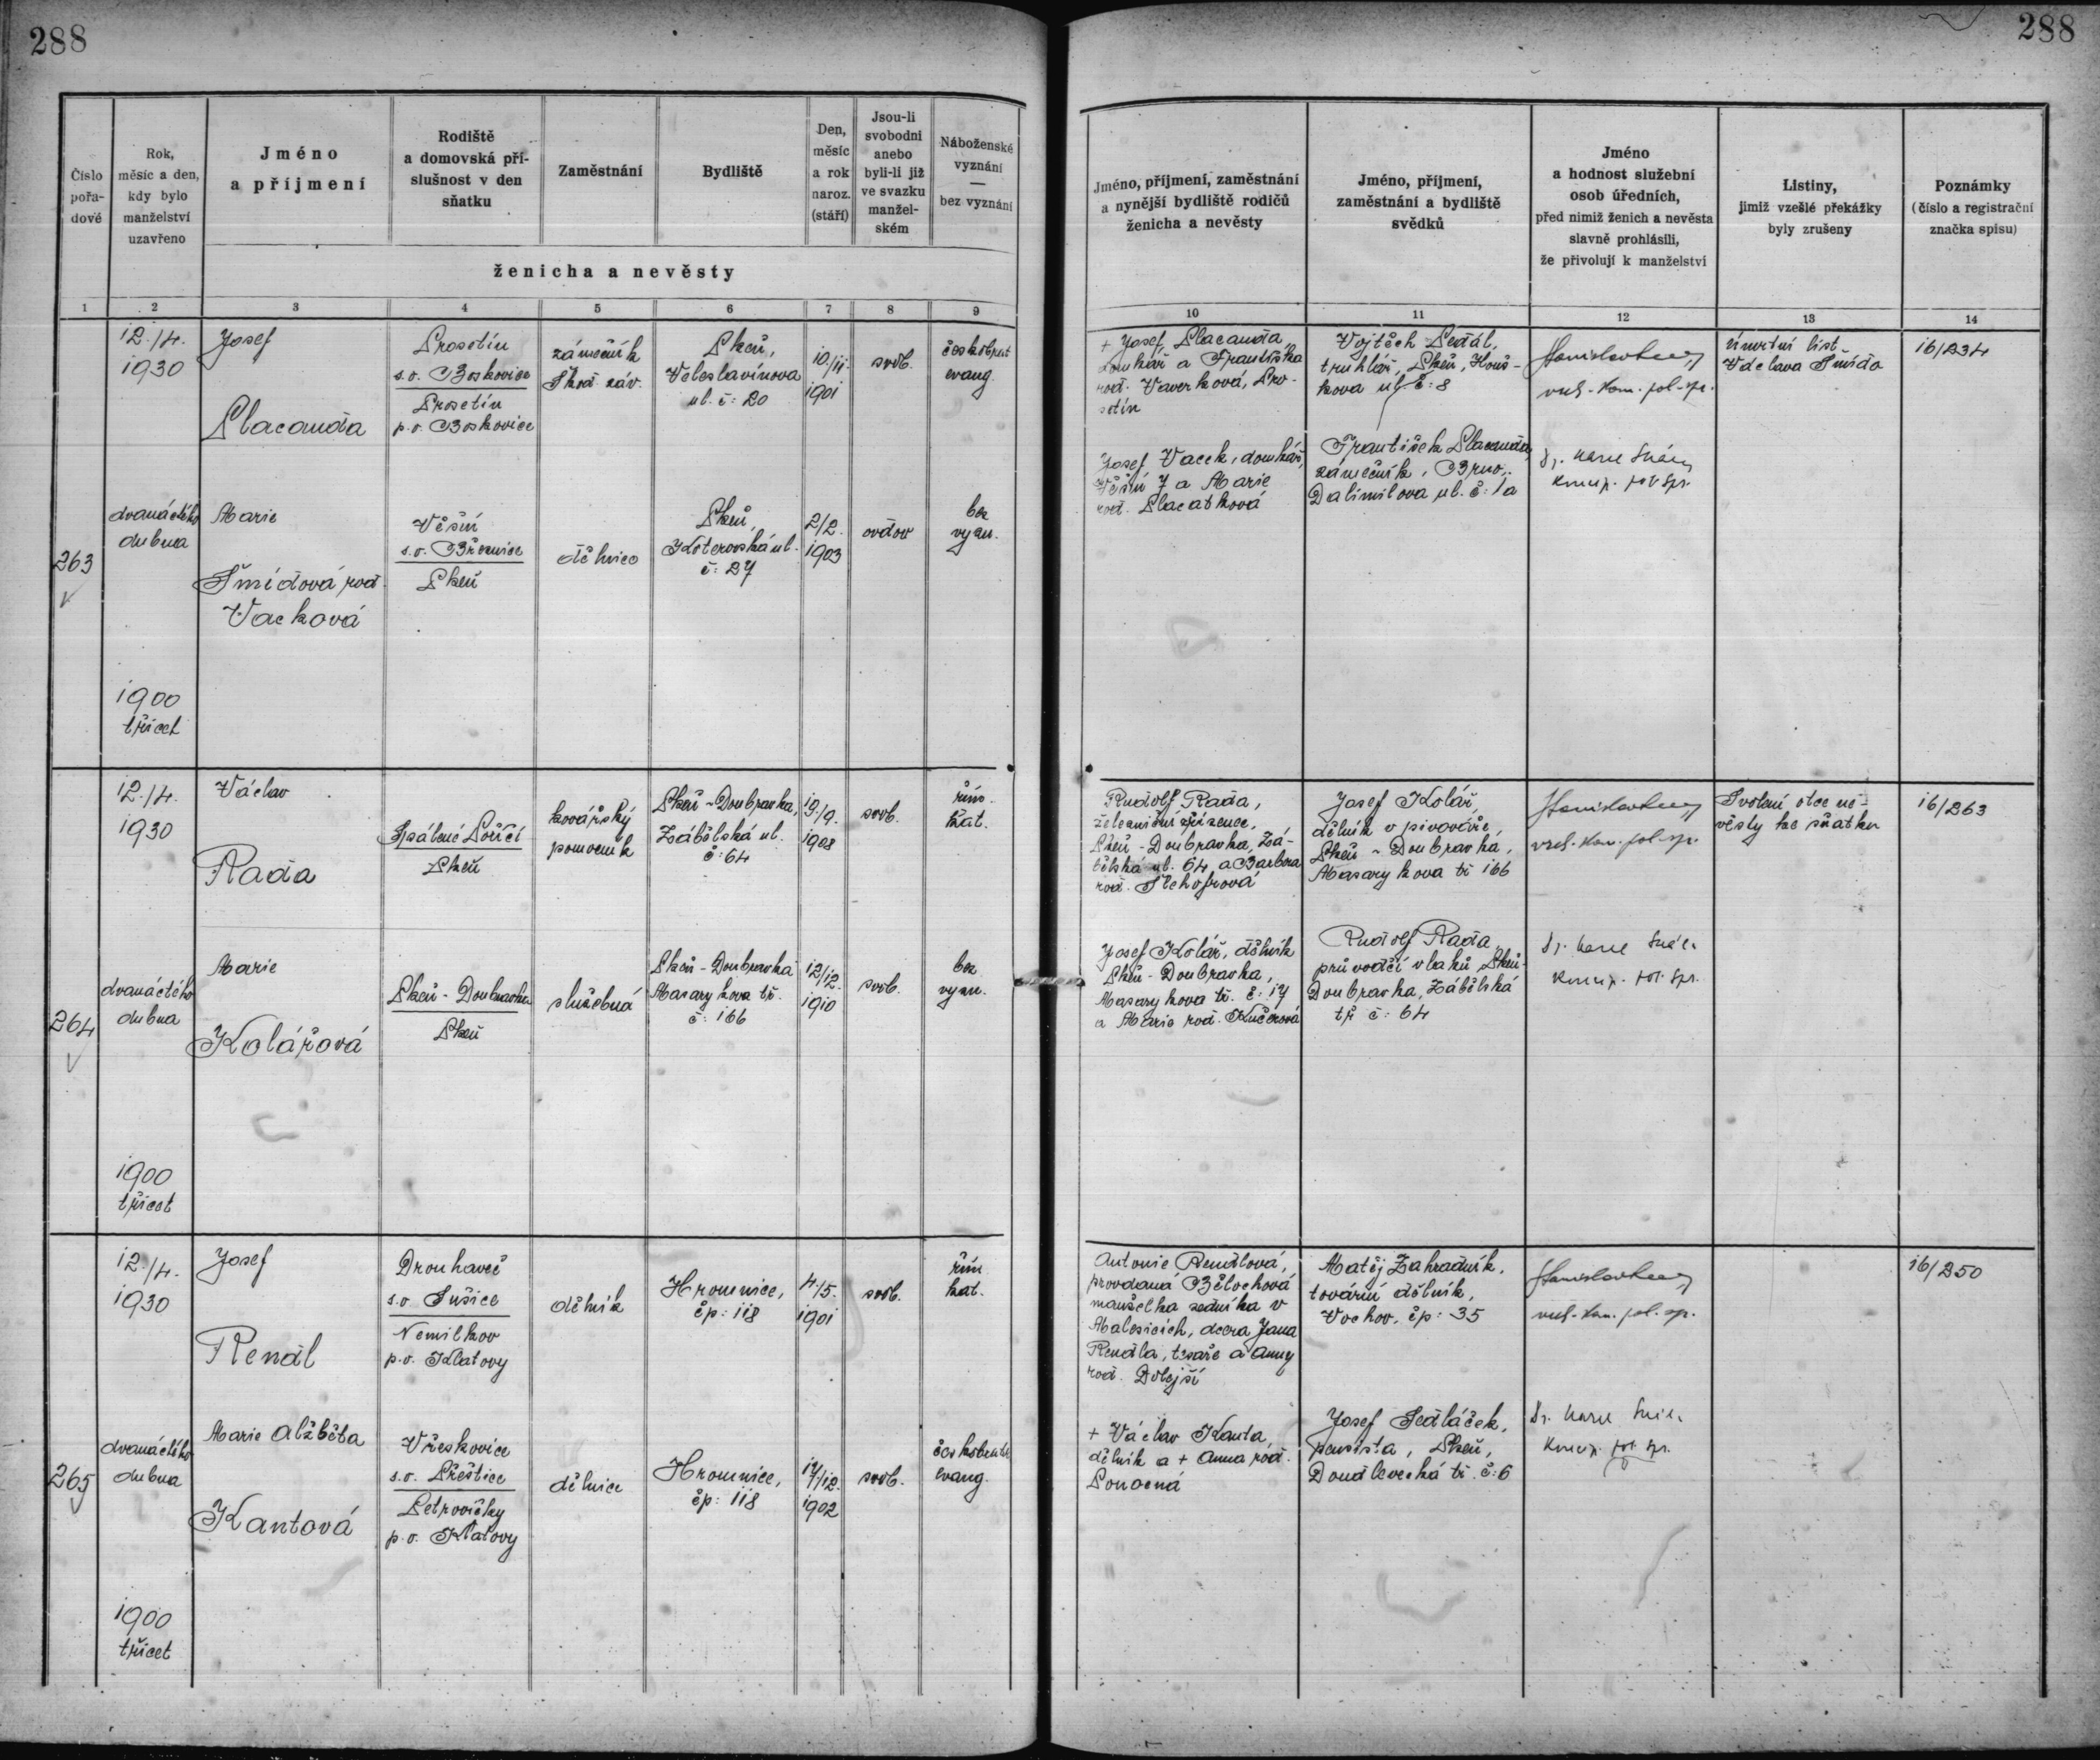 288
288
Číslo
pořa-
dové
Rok,
měsíc a den,
kdy bylo
manželství
uzavřeno
Jméno
a příjmení
Rodiště
a domovská pří-
slušnost v den
sňatku
Zaměstnání
Bydliště
Den,
měsíc
a rok
naroz.
(stáří)
Jsou-li
svobodni
anebo
byli-li již
ve svazku
manžel-
ském
Náboženské
vyznání
—
bez vyznání
ženicha a nevěsty
Jméno, příjmení, zaměstnání
a nynější bydliště rodičů
ženicha a nevěsty
Jméno, příjmení,
zaměstnání a bydliště
svědků
Jméno
a hodnost služební
osob úředních,
před nimiž ženich a nevěsta
slavně prohlásili,
že přivolují k manželství
Listiny,
jimiž vzešlé překážky
byly zrušeny
Poznámky
(číslo a registrační
značka spisu)
1 2 3 4 5 6 7 8 9 10 11 12 13 14
263
12./4.
1930
dvanáctého
dubna
1900
třicet
Josef
Placanda
Prosetín
s.o. Boskovice
Prosetín
p.o. Boskovice
zámečník
Škod. záv.
Plzeň,
Veleslavínova
ul. č: 20
10/11.
1901
svob.
českobrat.
evang.
Marie
Šmídová roz.
Vacková
Věšín
s.o. Březnice
Plzeň
dělnice
Plzeň,
Koterovská ul.
č: 27
2/2.
1903
ovdov
bez
vyzn.
+ Josef Placanda,
domkář a Františka
roz. Vaverková, Pro-
setín
Josef Vacek, domkář,
Věšín 7 a Marie
roz. Placatková
Vojtěch Sedál,
truhlář, Plzeň, Houš-
kova ul č: 8
František Placanda,
zámečník, Brno,
Dalimilova ul. č: 1a
vrch. kom. pol. spr.
Dr. Karel
koncip. pol. spr.
Úmrtní list
Václava Šmída
16/234
264
12./4.
1930
dvanáctého
dubna
1900
třicet
Václav
Rada
Spálené Poříčí
Plzeň
kovářský
pomocník
Plzeň - Doubravka,
Zábělská ul.
č: 64
19./9.
1908
svob.
řím.
kat.
Marie
Kolářová
Plzeň - Doubravka
Plzeň
služebná
Plzeň - Doubravka
Masarykova tř.
č: 166
12/12.
1910
svob.
bez
vyzn.
Rudolf Rada,
železniční zřízenec,
Plzeň - Doubravka, Zá-
bělská ul. 64 a Barbora
roz. Šlehofrová
Josef Kolář, dělník
Plzeň - Doubravka,
Masarykova tř. č: 17
a Marie roz. Kučerová
Josef Kolář,
dělník v pivováře,
Plzeň - Doubravka,
Masarykova tř 166
Rudolf Rada,
průvodčí vlaků Plzeň-
Doubravka, Zábělská
tř č: 64
vrch. kom. pol. spr.
Dr. Karel
koncip. pol. spr.
Svolení otce ne-
věsty ke sňatku
16/263
265
12./4.
1930
dvanáctého
dubna
1900
třicet
Josef
Rendl
Drouhaveč
s.o. Sušice
Nemilkov
p.o. Klatovy
dělník
Hromnice,
čp: 118
4./5.
1901
svob.
řím.
kat.
Marie Alžběta
Kantová
Vřeskovice
s.o. Přeštice
Petrovičky
p.o. Klatovy
dělnice
Hromnice,
čp: 118
17/12.
1902
svob.
českobratr.
evang.
Antonie Rendlová,
provdaná Bělochová
manželka zedníka v
Malesicích, dcera Jana
Rendla, tesaře a Anny
roz. Dolejší
+ Václav Kanta,
dělník a + Anna roz.
Matěj Zahradník,
tovární dělník,
Vochov, čp: 35
Josef Sedláček,
pensista, Plzeň,
Doudlevecká tř. č: 6
vrch. kom. pol. spr.
Dr. Karel
koncip. pol. spr.
16/250